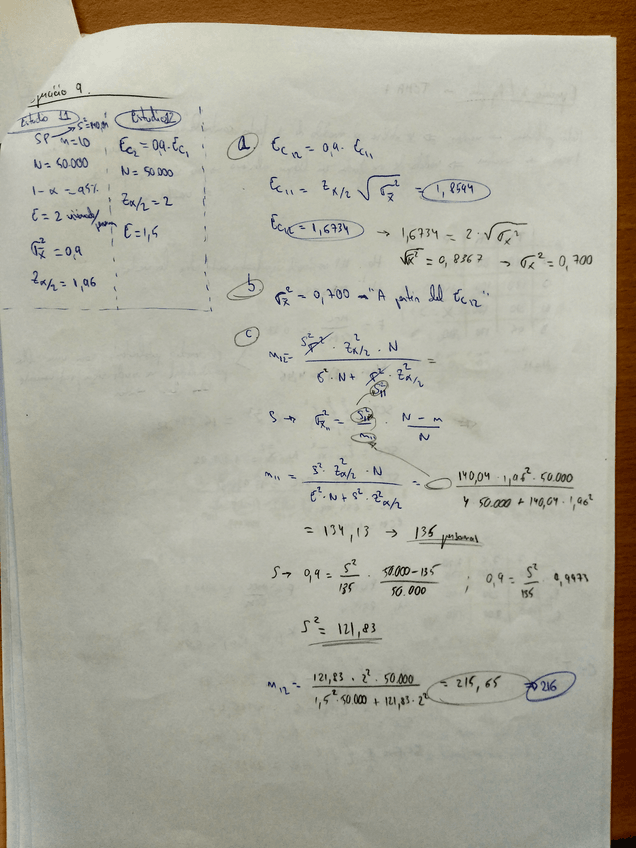 Ejercicio 9.
Estudio 11
SP → S² = 140,04
n = 10
N = 50.000
1 - α = 95%
E = 2
σx̄² = 0,9
Zα/2 = 1,96
Estudio 12
Ec2 = 0,9 · Ec1
N = 50.000
Zα/2 = 2
E = 1,5
a) Ec12 = 0,9 · Ec11
Ec11 = Zα/2 √σx̄² = 1,8594
Ec12 = 1,6734 → 1,6734 = 2 · √σx²
√σx² = 0,8367 → σx² = 0,700
b) σx̄² = 0,700 → "A partir del Ec12"
c)
n12 = S² · Z²α/2 · N / E² · N + S²11 · Z²α/2 =
S → σx̄11² = S²11 / n11 · N - n / N
n11 = S² · Z²α/2 · N / E² · N + S² · Z²α/2 = 140,04 · 1,96² · 50.000 / 4 · 50.000 + 140,04 · 1,96²
= 134,13 → 135
S → 0,9 = S² / 135 · 50.000 - 135 / 50.000 ; 0,9 = S² / 135 · 0,9973
S² = 121,83
n12 = 121,83 · 2² · 50.000 / 1,5² · 50.000 + 121,83 · 2² = 215,65 ⇒ 216